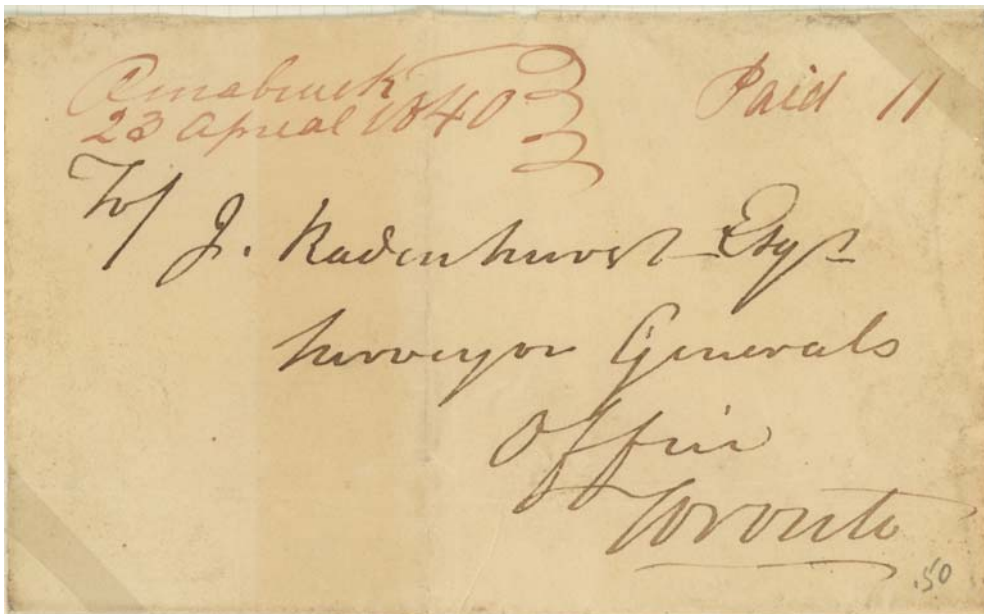 Osnabruck
23 Apreal 1840
Paid 11
To/ J. Radenhurst Esqr
Surveyor Generals
Office
Toronto
.50